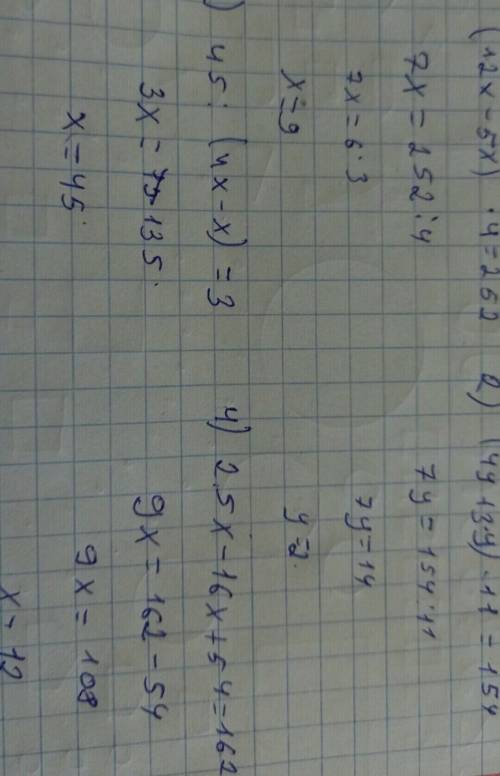 (12x-5x) ·4=252
7x = 252:4
7x=6·3
x=9
2) (4y+3y) ·11 = 154
7y = 154:11
7y=14
y=2.
) 45: (4x-x) = 3
3x = 135.
x=45.
4) 25x-16x+54=162
9x = 162-54
9x = 108
x=12